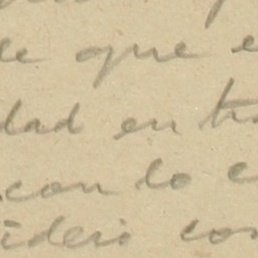 de que e
dad en tra
con lo c
sideró con